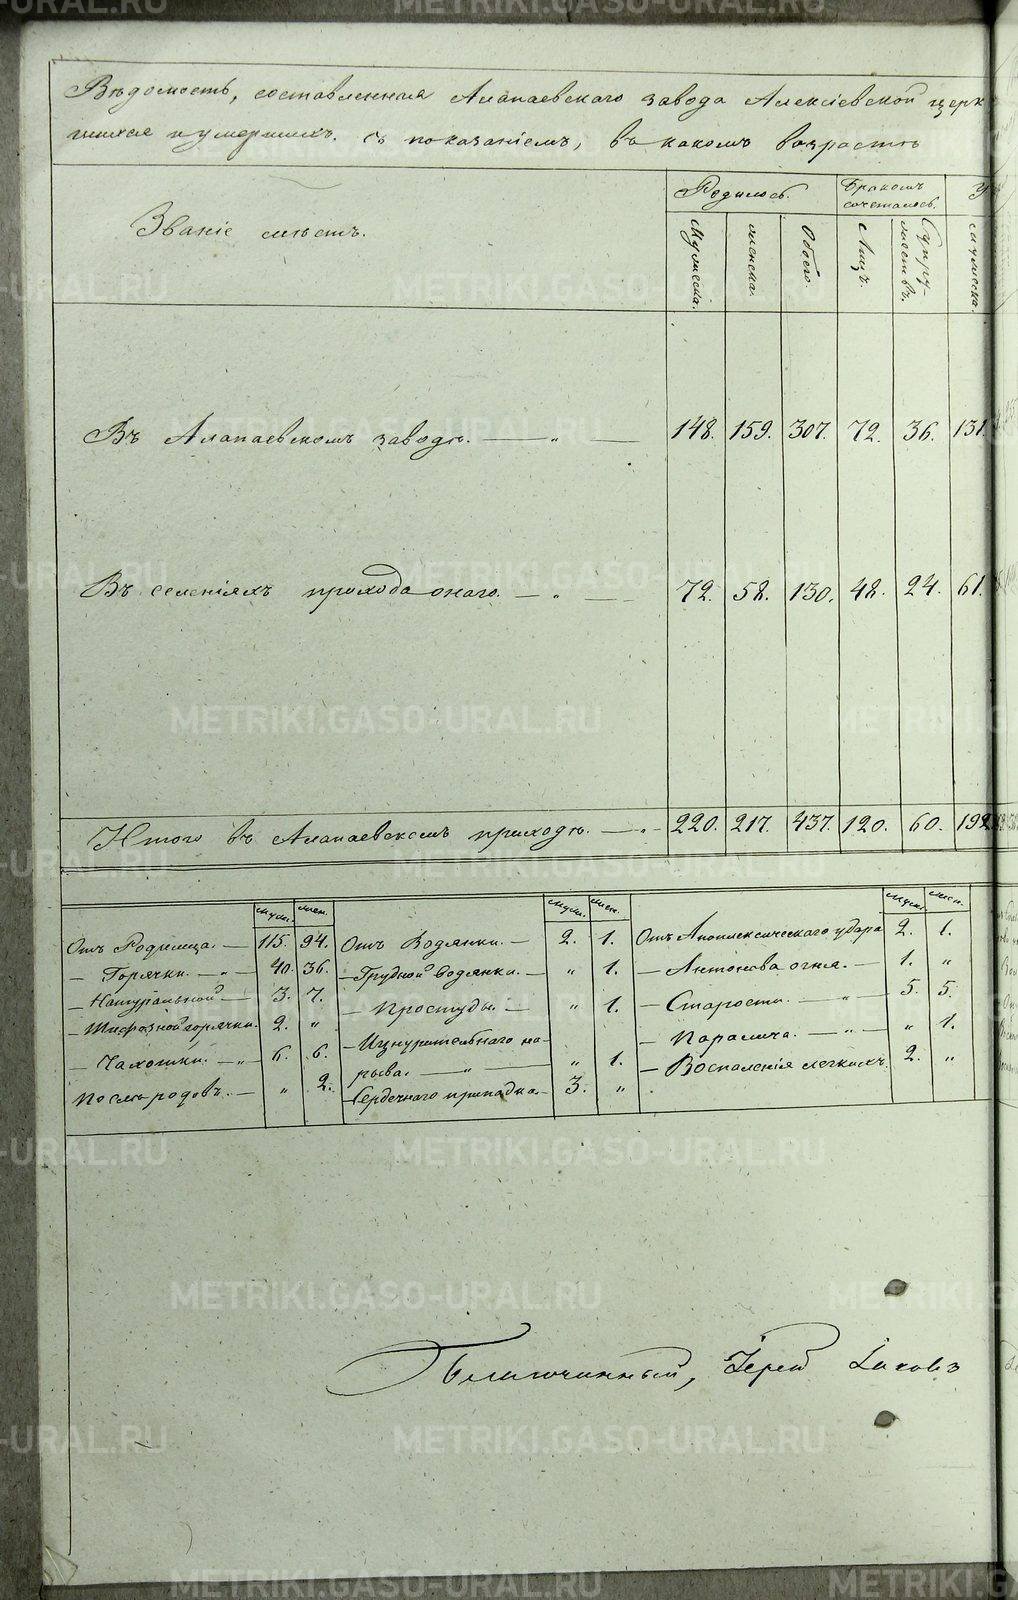 Вѣдомость, составленная Алапаевскаго завода Алексіевской церк
шихся и умершихъ. съ показаніемъ, въ какомъ возрастѣ
Званіе мѣстъ.
Родилось.
Бракомъ сочеталось.
У
Мужеска.
женска.
Обоего.
Лицъ.
Супру-
жествъ.
мужеска.
Въ Алапаевскомъ заводѣ. — „ — 148. 159. 307. 72. 36. 131.
Въ селеніяхъ прихода онаго. — „ — 72. 58. 130. 48. 24. 61.
Итого въ Алапаевскомъ приходѣ. — „ — 220. 217. 437. 120. 60. 192
муж. жен. муж. жен. муж. жен.
Отъ Родимца. — 115. 94. Отъ Водянки. — 2. 1. Отъ Апоплексическаго удара 2. 1.
— Горячки. — „ — 40. 36. — Грудной водянки. — „ 1. — Антонова огня. — 1. „
— Натуральной — 3. 7. — Простуды. — „ 1. — Старости. — „ — 5. 5.
— Тифозной горячки. 2. „ — Изнурительнаго на- — Паралича. — „ — „ 1.
— Чахотки. — „ 6. 6. рыва. — „ — „ 1. — Воспаленія легкихъ. 2. „
Послѣ родовъ. — „ 2. — Сердечнаго припадка. — 3. „
Благочинный, Іерей Іаковъ
METRIKI.GASO-URAL.RU